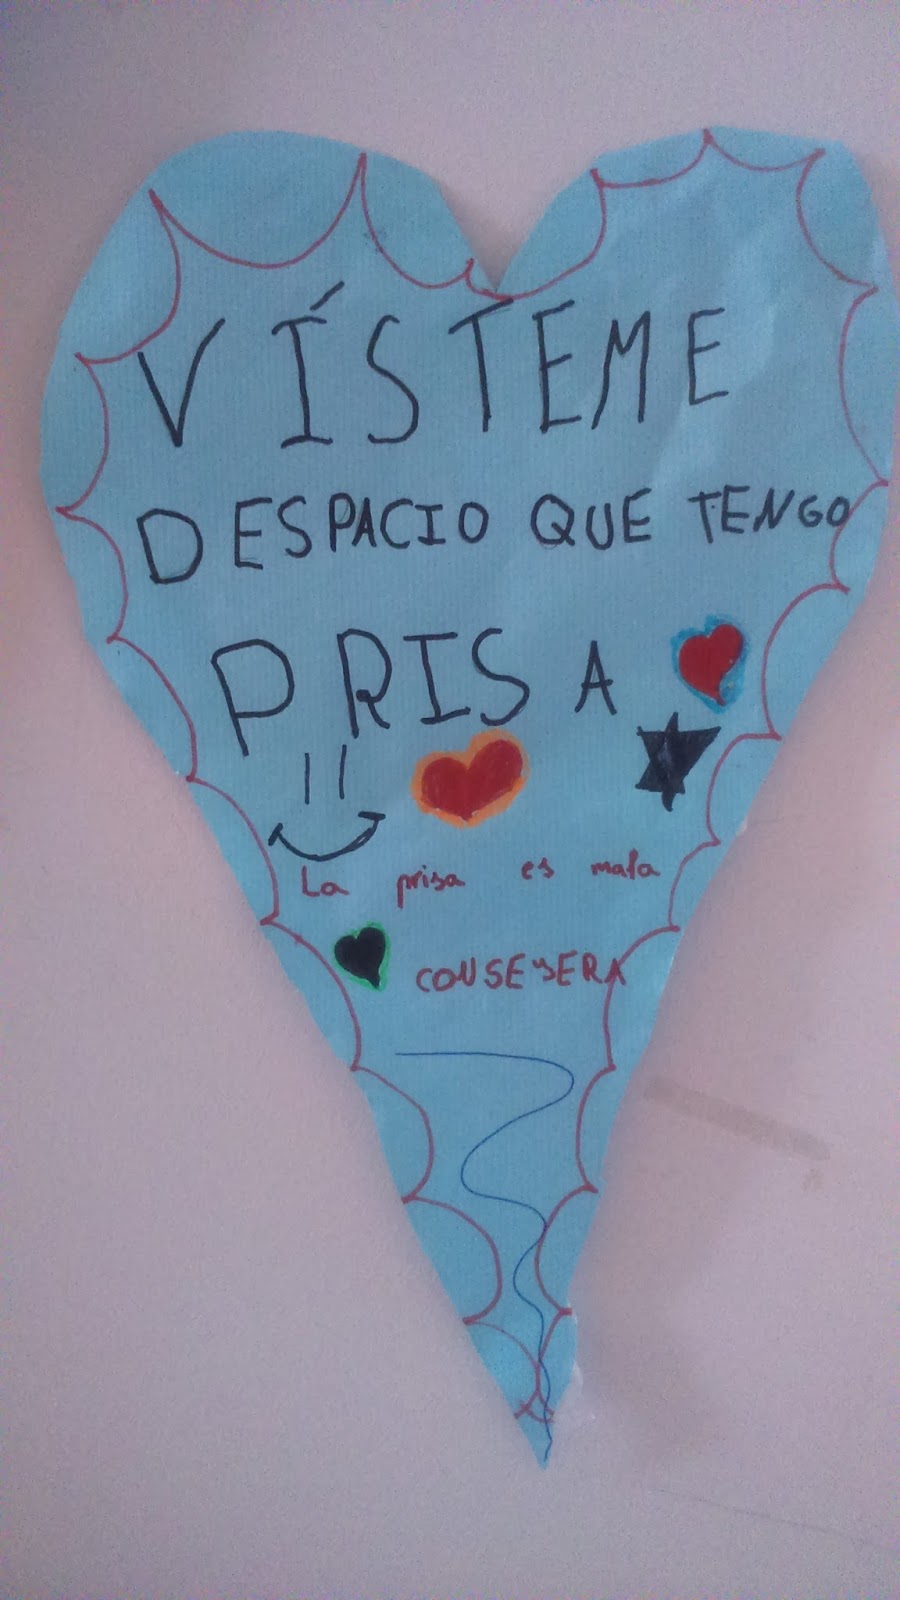 VÍSTEME
DESPACIO QUE TENGO
PRISA
La prisa es mala
CONSEYERA